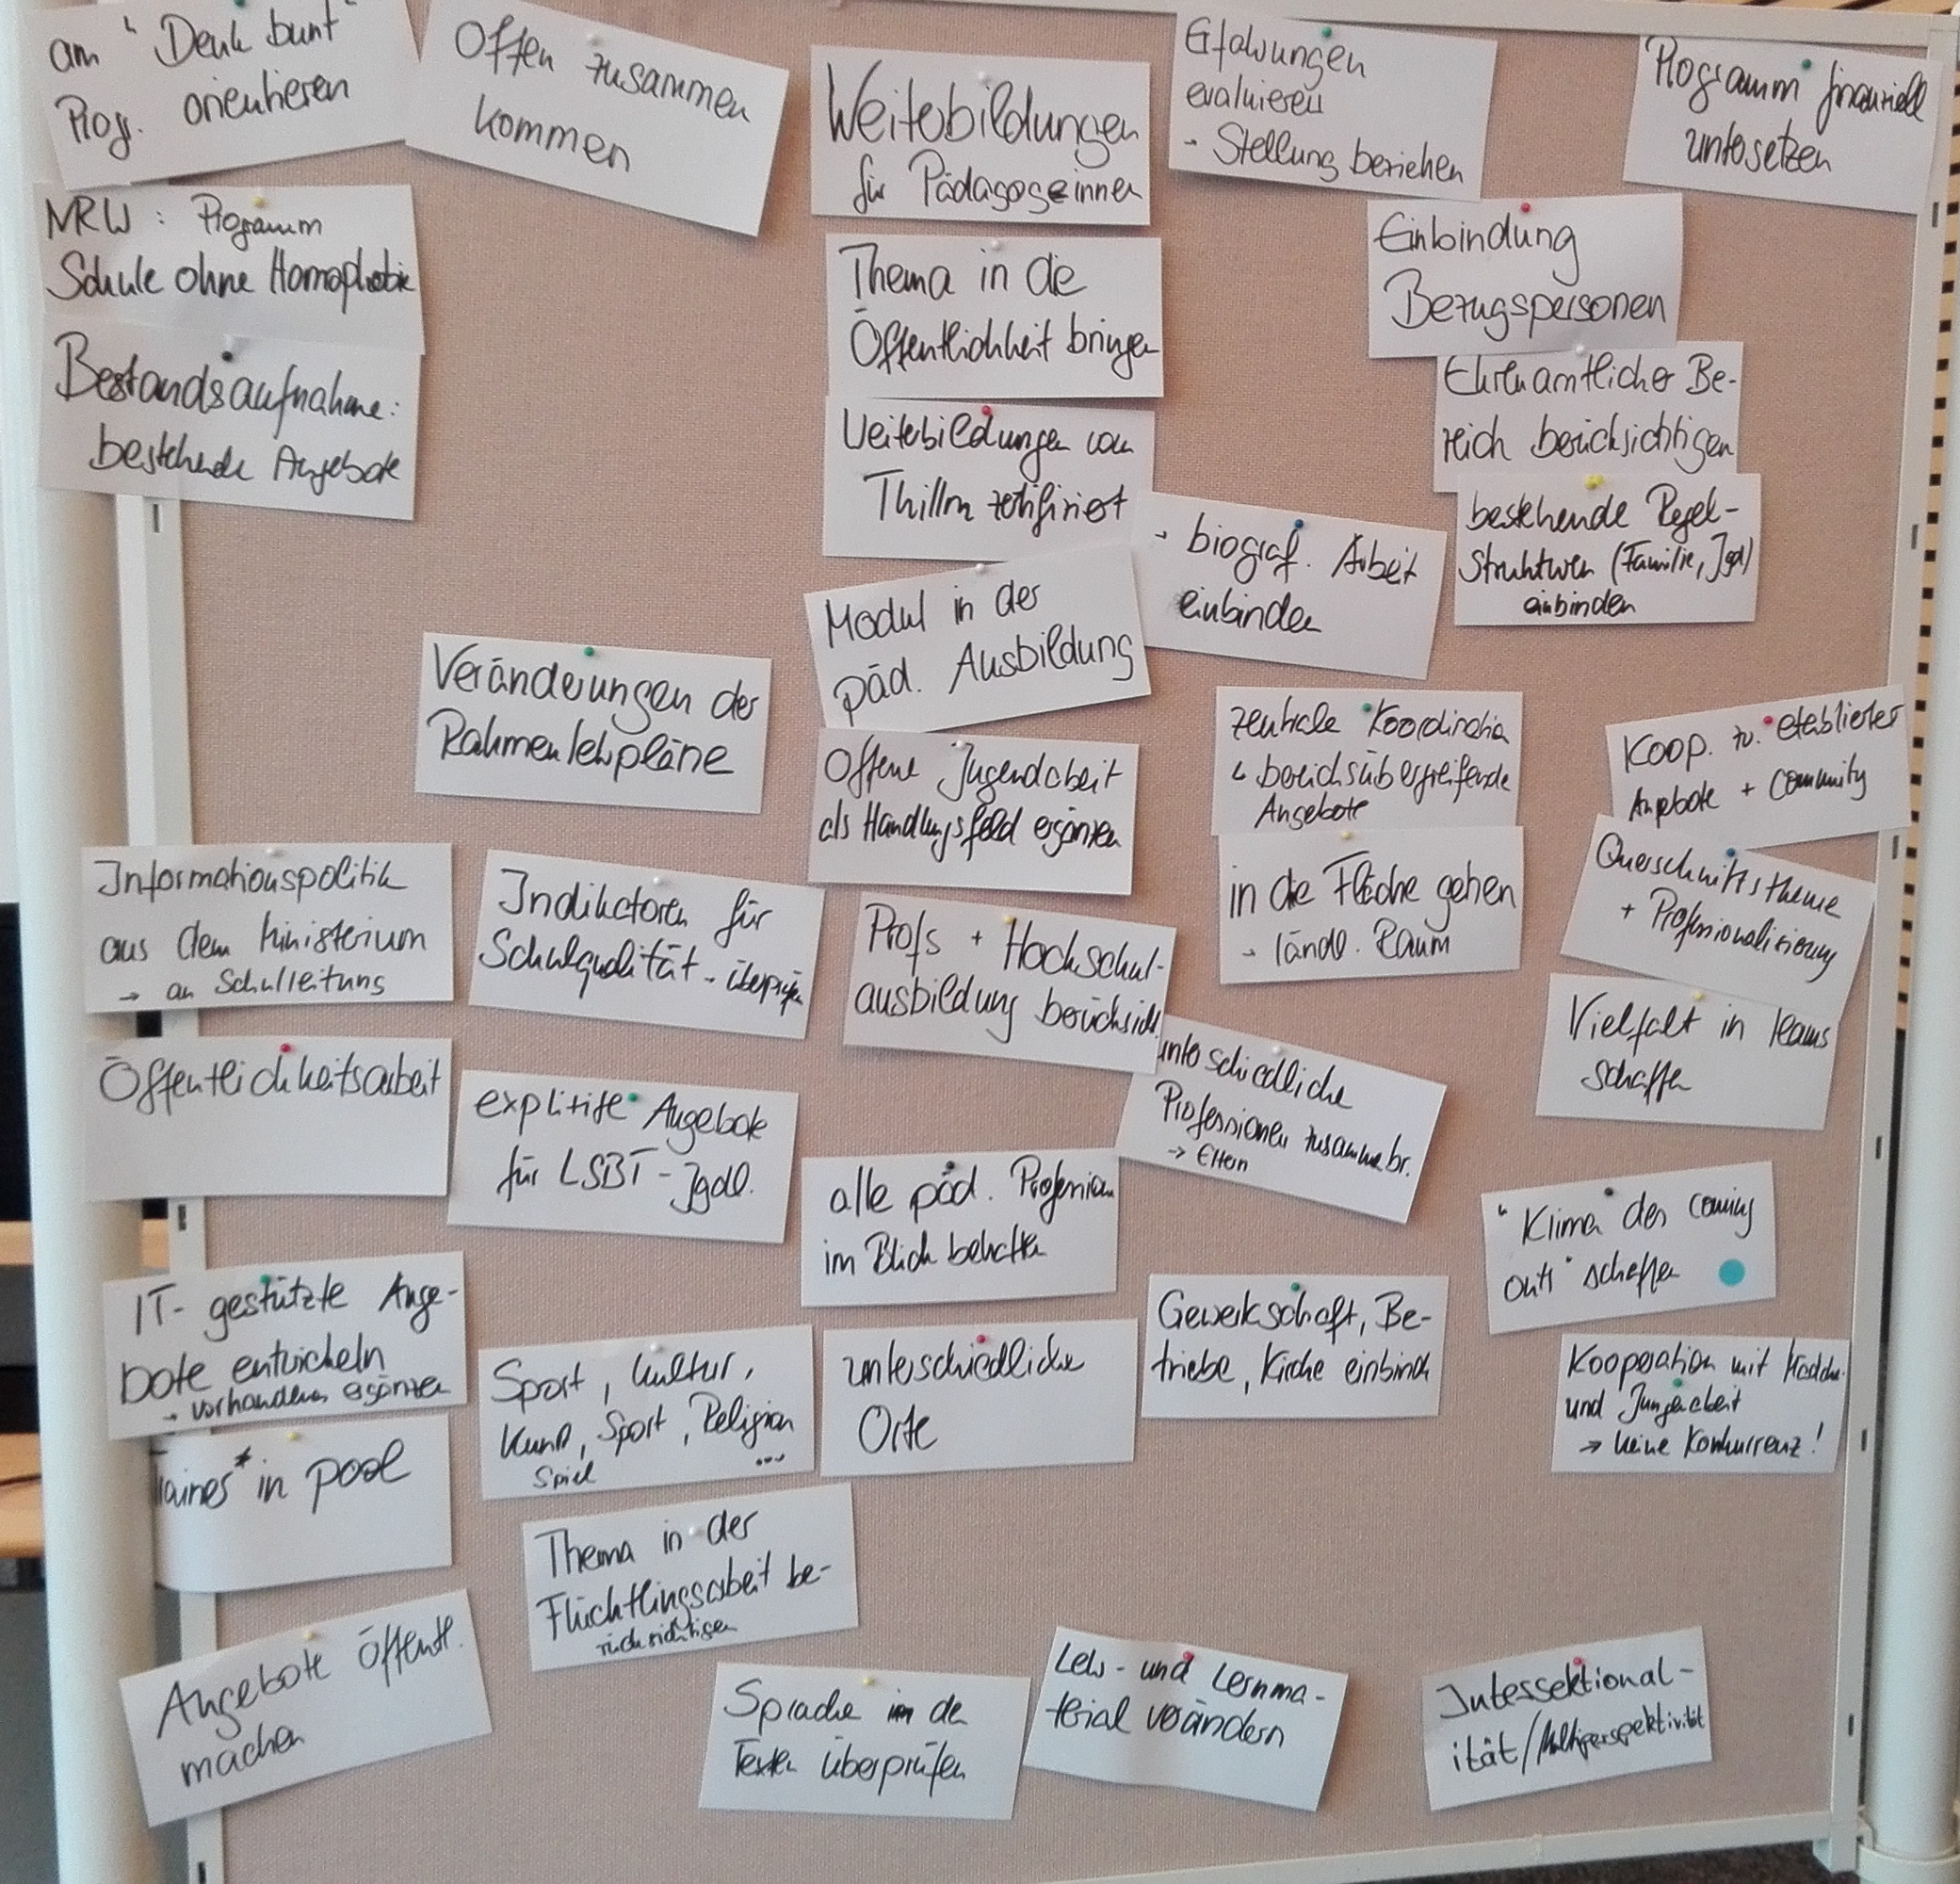 am "Denk bunt"
Progr. orientieren
Offen zusammen
kommen
Weiterbildungen
für Pädagoge*innen
Erfahrungen
evaluieren
- Stellung beziehen
Programm finanziell
untersetzen
NRW : Programm
Schule ohne Homophobie
Bestandsaufnahme:
bestehende Angebote
Thema in die
Öffentlichkeit bringen
Weiterbildungen vom
Thillm zertifiziert
Einbindung
Bezugspersonen
Ehrenamtlicher Be-
reich berücksichtigen
bestehende Regel-
Strukturen (Familie, Jgd)
einbinden
- biograf. Arbeit
einbinden
Modul in der
päd. Ausbildung
Veränderungen der
Rahmenlehrpläne
Offene Jugendarbeit
als Handlungsfeld ergänzen
zentrale Koordination
↳ bereichsübergreifende
Angebote
in die Fläche gehen
- ländl. Raum
Koop. zw. etablierter
Angebote + Community
Querschnittsthema
+ Professionalisierung
Vielfalt in Teams
schaffen
Informationspolitik
aus dem Ministerium
→ an Schulleitung
Indikatoren für
Schulqualität - überprüfen
Profs + Hochschul-
ausbildung berücksicht.
unterschiedliche
Professionen zusammenbr.
→ Eltern
Öffentlichkeitsarbeit
explizite Angebote
für LSBT-Jgdl.
alle päd. Professionen
im Blick behalten
"Klima des coming
outs" schaffen
IT-gestützte Ange-
bote entwickeln
→ vorhandenes ergänzen
Sport, Kultur,
Kunst, Sport, Religion
Spiel ...
unterschiedliche
Orte
Gewerkschaft, Be-
triebe, Kirche einbind
Kooperation mit Mädchen
und Jungenarbeit
→ keine Konkurrenz!
in pool
Thema in der
Flüchtlingsarbeit be-
rücksichtigen
Angebote öffentl.
machen
Sprache in de
Texten überprüfen
Lehr- und Lernma-
terial verändern
Intersektional-
ität/Multiperspektivität